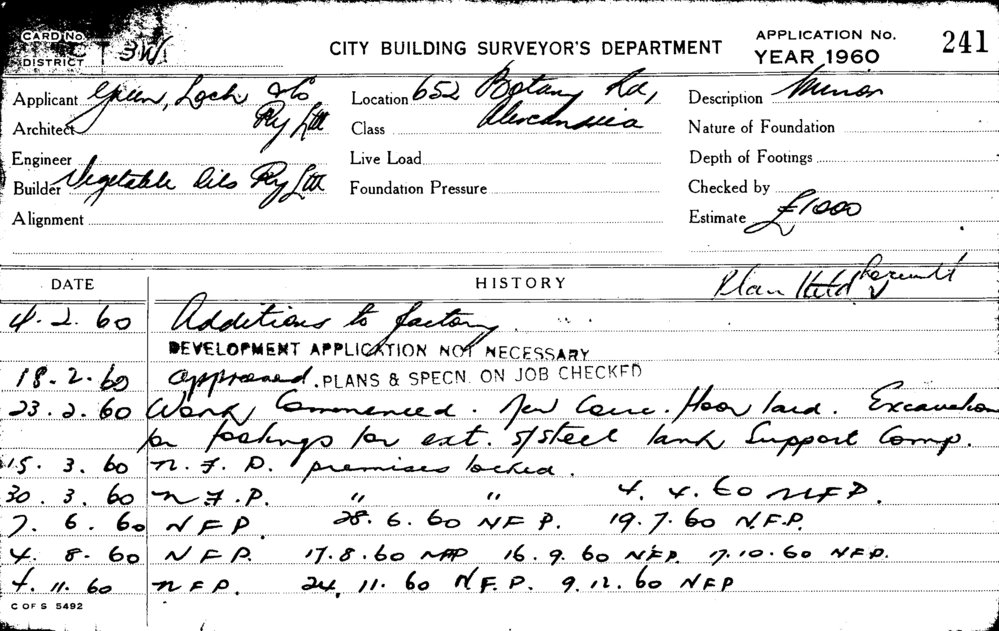 CARD No.
C
DISTRICT 3W.
CITY BUILDING SURVEYOR'S DEPARTMENT
APPLICATION No. 241
YEAR 1960
Applicant Green, Loch & Co
Pty Ltd
Architect
Engineer
Builder Vegetable Oils Pty Ltd
Alignment
Location 652 Botany Rd,
Alexandria
Class
Live Load
Foundation Pressure
Description Minor
Nature of Foundation
Depth of Footings
Checked by
Estimate £1000
DATE HISTORY Plan Held
4.2.60 Additions to factory.
DEVELOPMENT APPLICATION NOT NECESSARY
18.2.60 Approved. PLANS & SPECN. ON JOB CHECKED
23.2.60 Work Commenced. New Conc. floor laid. Excavation
for footings for ext. s/steel tank Support Comp.
15.3.60 N.F.P. premises locked.
30.3.60 N.F.P. " " 4.4.60 NFP.
7.6.60 NFP 28.6.60 NFP. 19.7.60 N.F.P.
4.8.60 NFP. 17.8.60 NFP 16.9.60 NFP. 17.10.60 NFP.
4.11.60 NFP. 24.11.60 N.F.P. 9.12.60 NFP
C OF S 5492